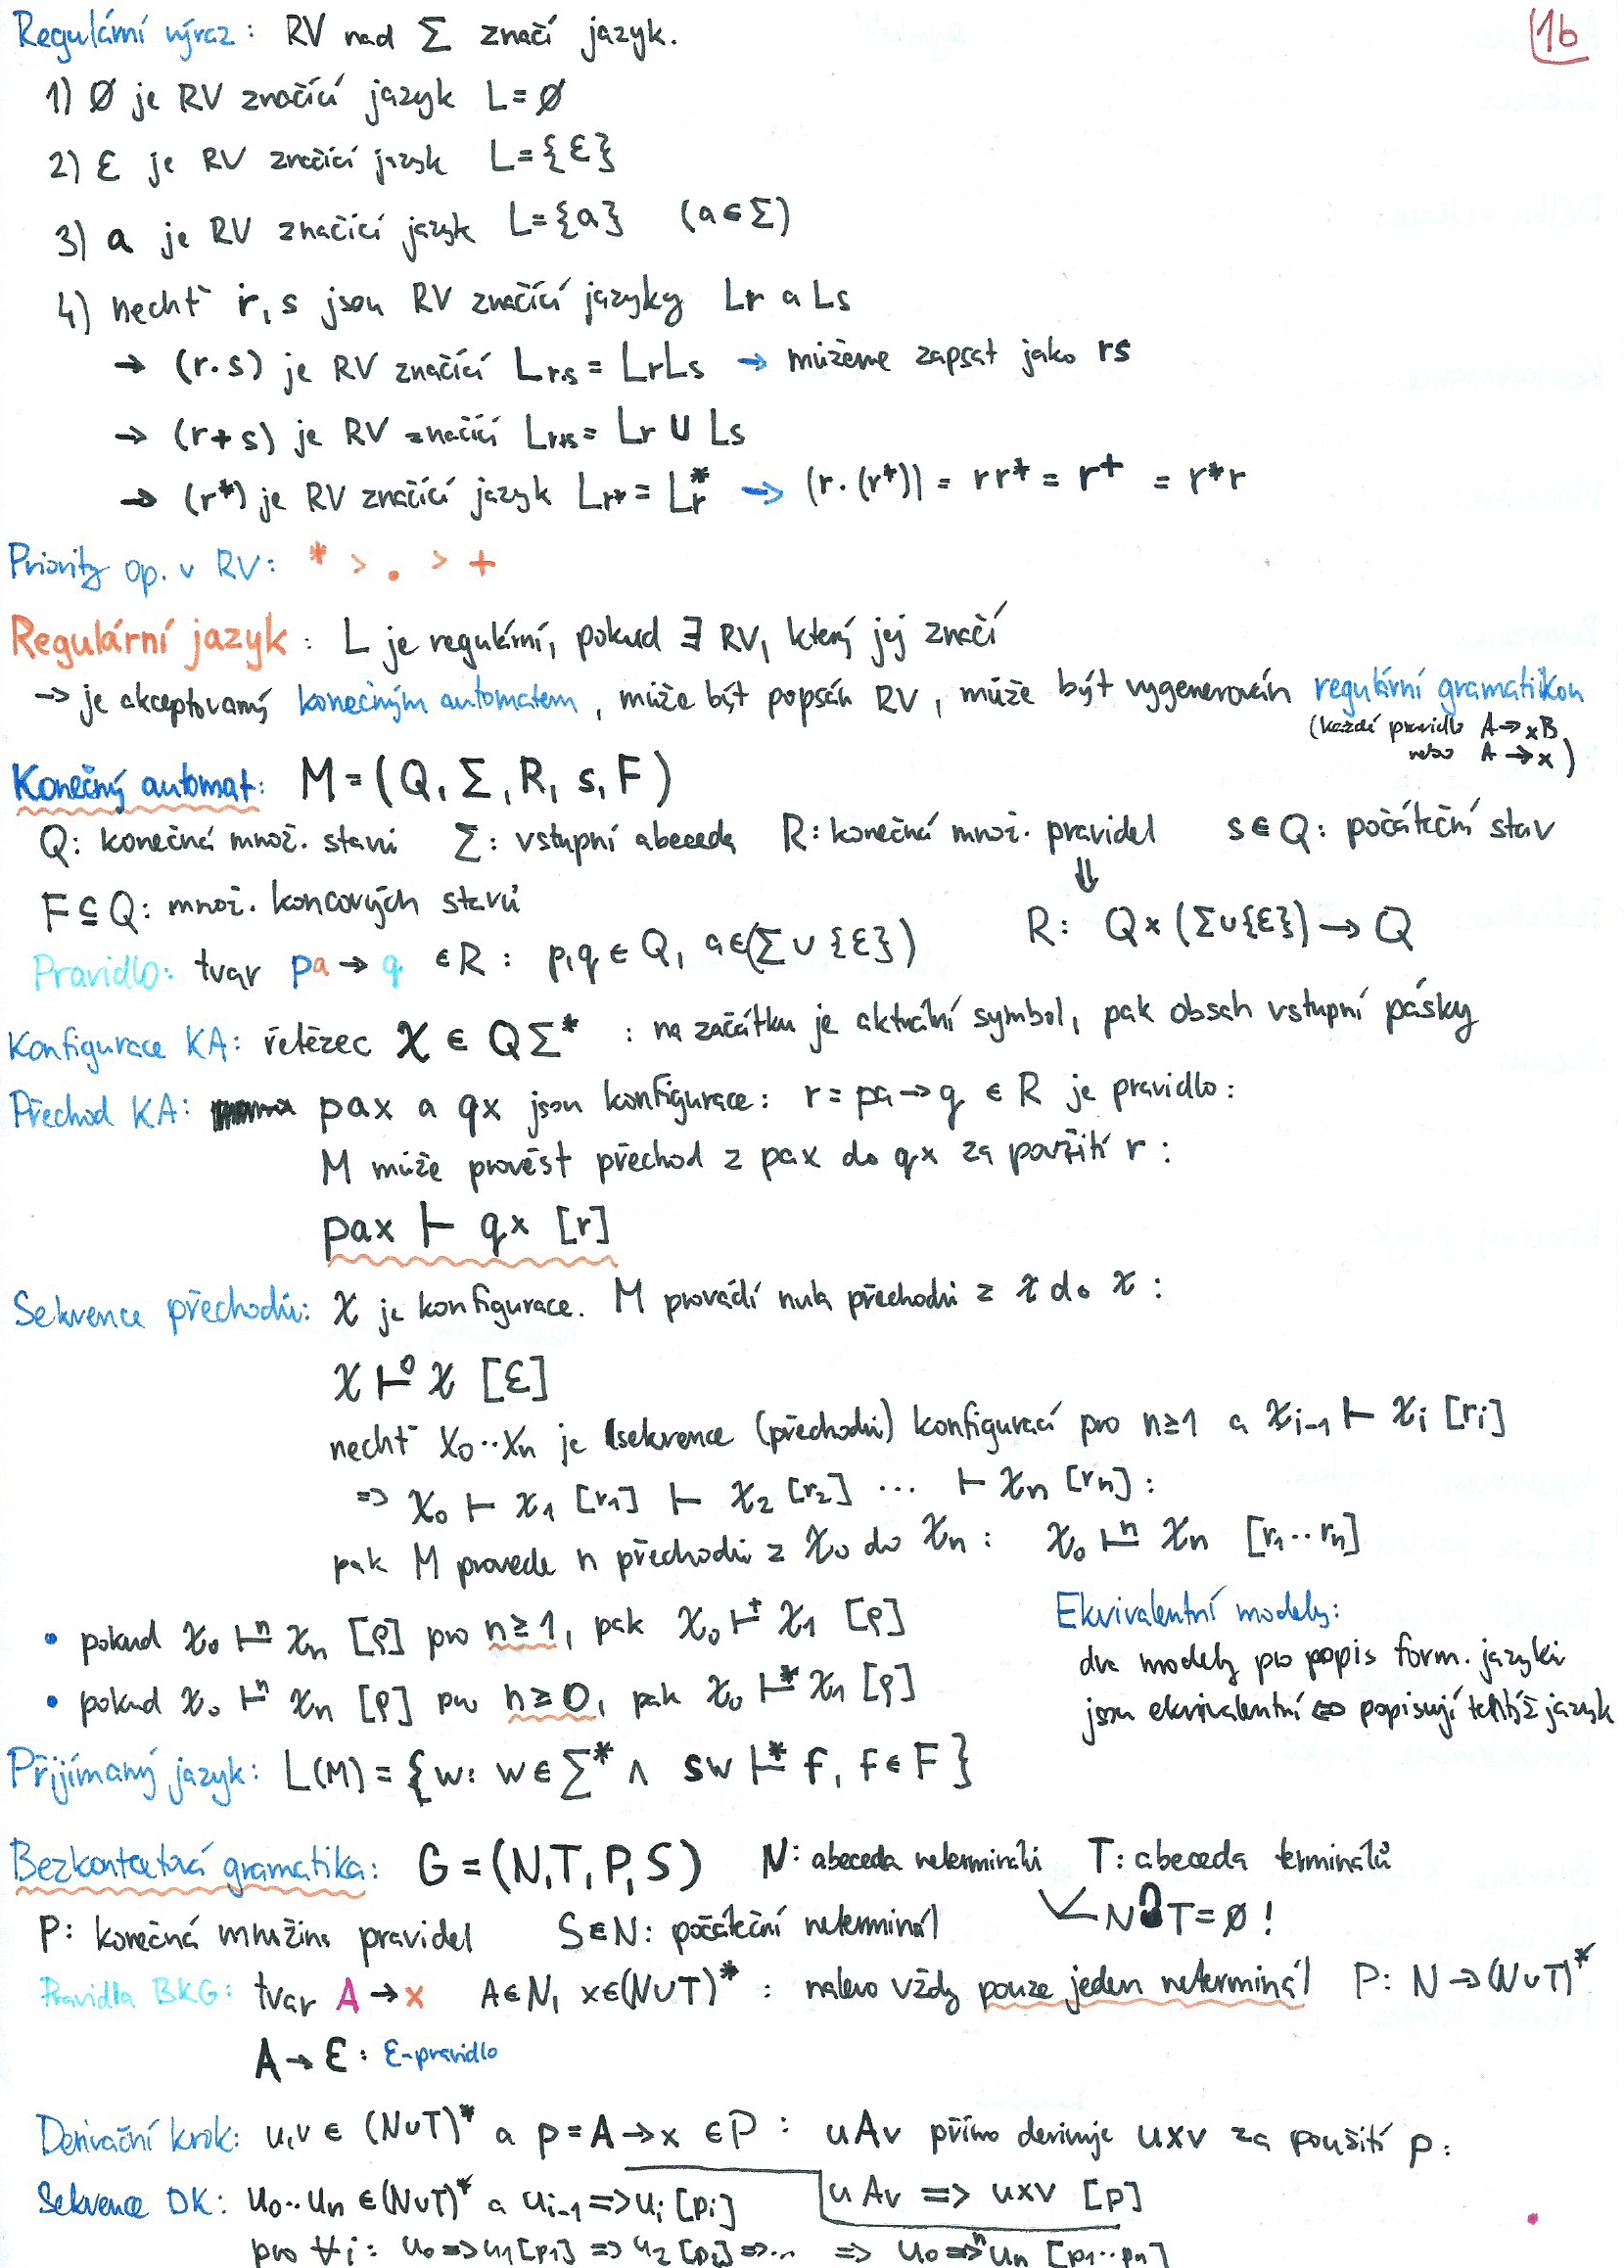 Regulární výraz: RV nad Σ značí jazyk.
1b
1) ∅ je RV značící jazyk L=∅
2) ε je RV značící jazyk L={ε}
3) a je RV značící jazyk L={a} (a∈Σ)
4) nechť r, s jsou RV značící jazyky Lr a Ls
→ (r.s) je RV značící Lr.s = LrLs → můžeme zapsat jako rs
→ (r+s) je RV značící Lr+s = Lr ∪ Ls
→ (r*) je RV značící jazyk Lr* = Lr* → (r.(r*)) = rr* = r⁺ = r*r
Priority op. v RV: * > . > +
Regulární jazyk: L je regulární, pokud ∃ RV, který jej značí
→ je akceptovaný konečným automatem, může být popsán RV, může být vygenerován regulární gramatikou
(každé pravidlo A→xB
nebo A→x)
Konečný automat: M = (Q, Σ, R, s, F)
Q: konečná množ. stavů Σ: vstupní abeceda R: konečná množ. pravidel s∈Q: počáteční stav
⇓
F⊆Q: množ. koncových stavů R: Q×(Σ∪{ε})→Q
Pravidlo: tvar pa→q ∈R: p,q ∈ Q, a∈(Σ∪{ε})
Konfigurace KA: řetězec χ ∈ QΣ* : na začátku je aktuální symbol, pak obsah vstupní pásky
Přechod KA: pax a qx jsou konfigurace: r = pa→q ∈ R je pravidlo:
M může provést přechod z pax do qx za použití r:
pax ⊢ qx [r]
Sekvence přechodů: χ je konfigurace. M provádí nula přechodů z χ do χ:
χ ⊢⁰ χ [ε]
nechť χ₀..χn je (sekvence (přechodů) konfigurací pro n≥1 a χi-1 ⊢ χi [ri]
⇒ χ₀ ⊢ χ₁ [r₁] ⊢ χ₂ [r₂] ... ⊢ χn [rn]:
pak M provede n přechodů z χ₀ do χn: χ₀ ⊢ⁿ χn [r₁..rn]
• pokud χ₀ ⊢ⁿ χn [ρ] pro n≥1, pak χ₀ ⊢⁺ χ₁ [ρ]
• pokud χ₀ ⊢ⁿ χn [ρ] pro n≥0, pak χ₀ ⊢* χn [ρ]
Ekvivalentní modely:
dva modely pro popis form. jazyků
jsou ekvivalentní ⇔ popisují tentýž jazyk
Přijímaný jazyk: L(M) = {w: w∈Σ* ∧ sw ⊢* f, f∈F}
Bezkontextová gramatika: G = (N, T, P, S) N: abeceda neterminálů T: abeceda terminálů
N∩T=∅!
P: konečná množina pravidel S∈N: počáteční neterminál
Pravidla BKG: tvar A→x A∈N, x∈(N∪T)* : nalevo vždy pouze jeden neterminál P: N→(N∪T)*
A→ε: ε-pravidlo
Derivační krok: u,v ∈ (N∪T)* a p = A→x ∈P: uAv přímo derivuje uxv za použití p:
uAv ⇒ uxv [p]
Sekvence DK: u₀..un ∈(N∪T)* a ui-1 ⇒ ui [pi]
pro ∀i: u₀⇒u₁[p₁] ⇒ u₂ [p₂] ⇒... ⇒ u₀⇒ⁿ un [p₁..pn]